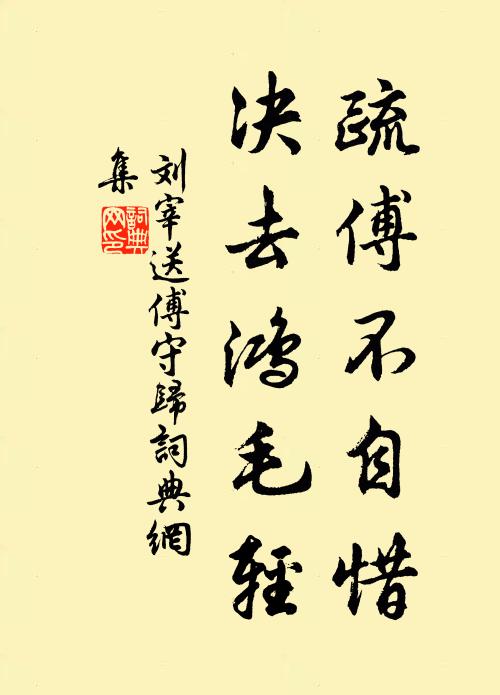 疏傅不自惜
决去鸿毛轻
刘宰送傅守歸詞典網
集
詞典
网印